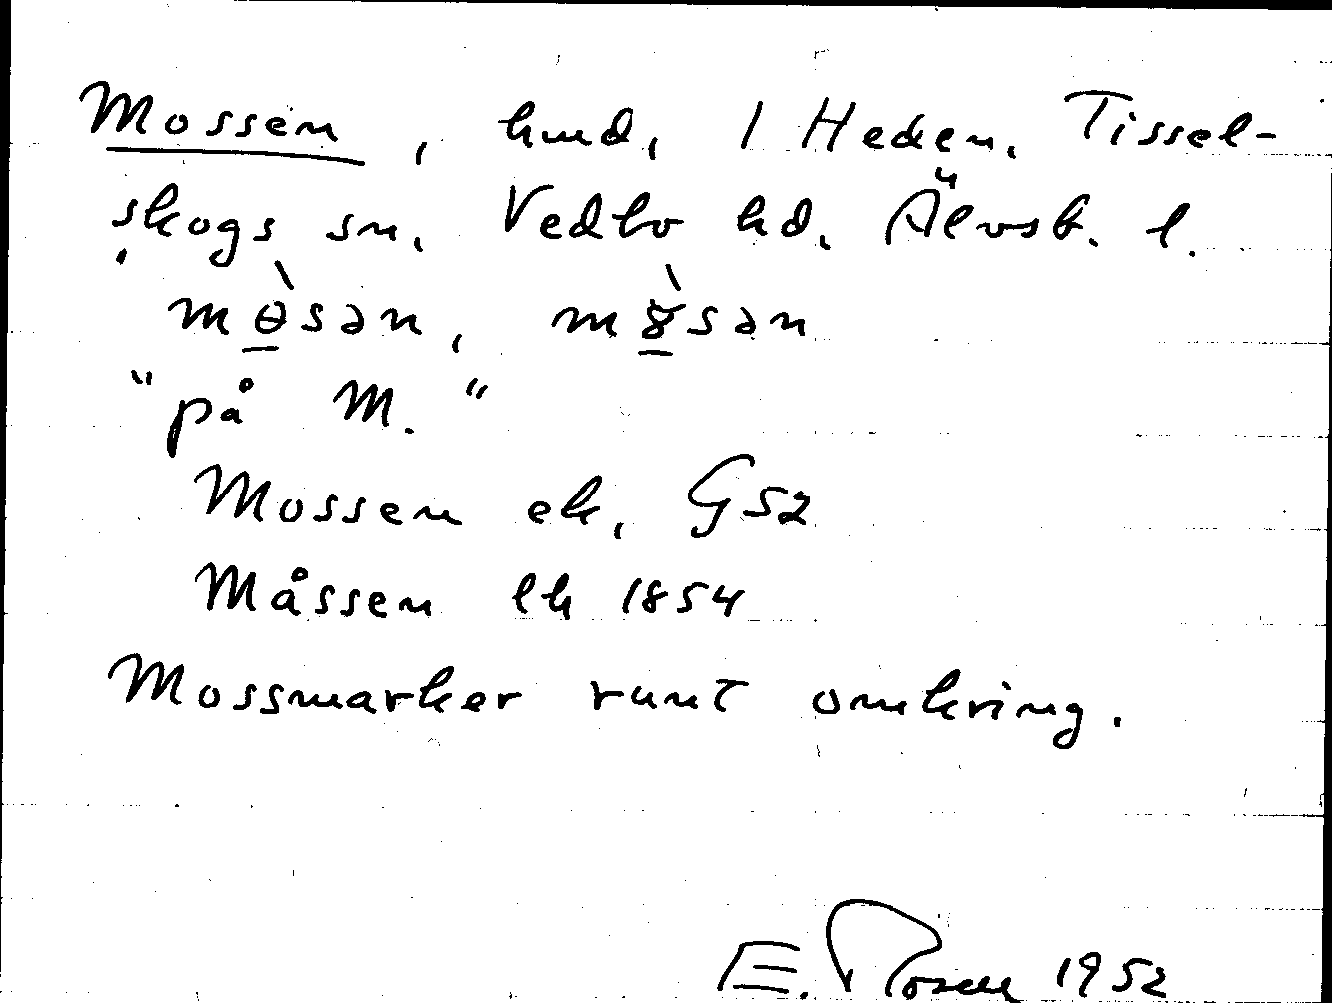 Mossen, hmd, 1 Heden, Tissel-
skogs sn, Vedbo hd, Älvsb. l.
mɵ̀sən, mɤ̀sən
"på M."
Mossen ek, G52
Måssen lh 1854
Mossmarker runt omkring.
E. Rosen 1952